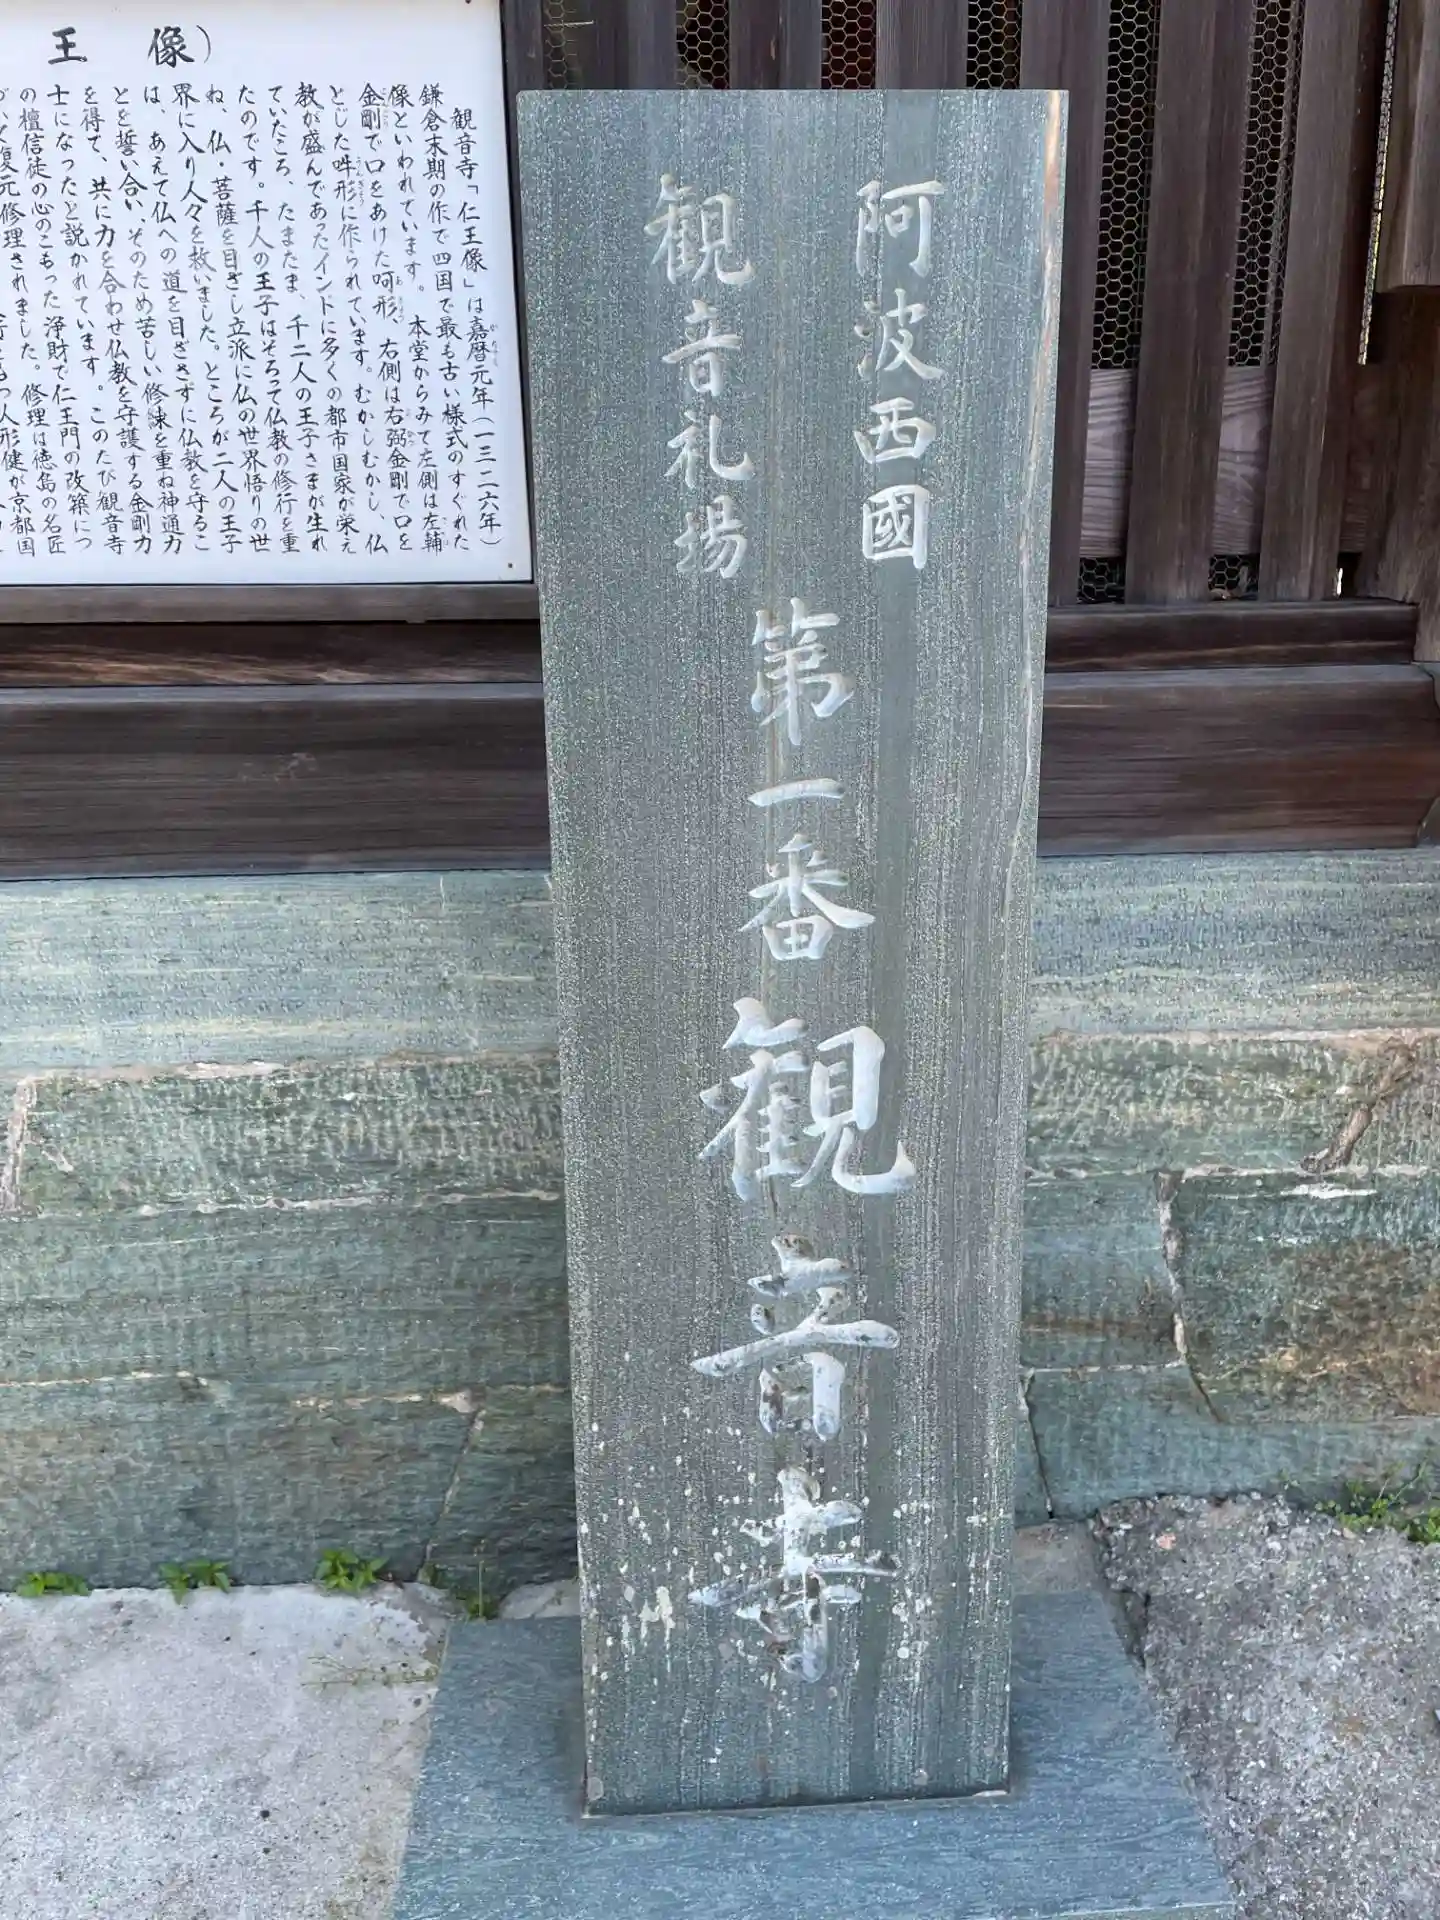 王 像）
観音寺「仁王像」は嘉暦元年（一三二六年）
鎌倉末期の作で四国で最も古い様式のすぐれた
像といわれています。 本堂からみて左側は左輔
金剛で口をあけた呵形、右側は右弼金剛で口を
とじた吽形に作られています。むかしむかし、仏
教が盛んであったインドに多くの都市国家が栄え
ていたころ、たまたま、千二人の王子さまが生れ
たのです。千人の王子はそろって仏教の修行を重
ね、仏・菩薩を目ざし立派に仏の世界悟りの世
界に入り人々を救いました。ところが二人の王子
は、あえて仏への道を目ざさずに仏教を守るこ
とを誓い合い、そのため苦しい修練を重ね神通力
を得て、共に力を合わせ仏教を守護する金剛力
士になったと説かれています。このたび観音寺
の檀信徒の心のこもった浄財で仁王門の改築につ
復元修理されました。修理は徳島の名匠
人形健が京都国
阿波西國
観音札場
第一番
観音寺